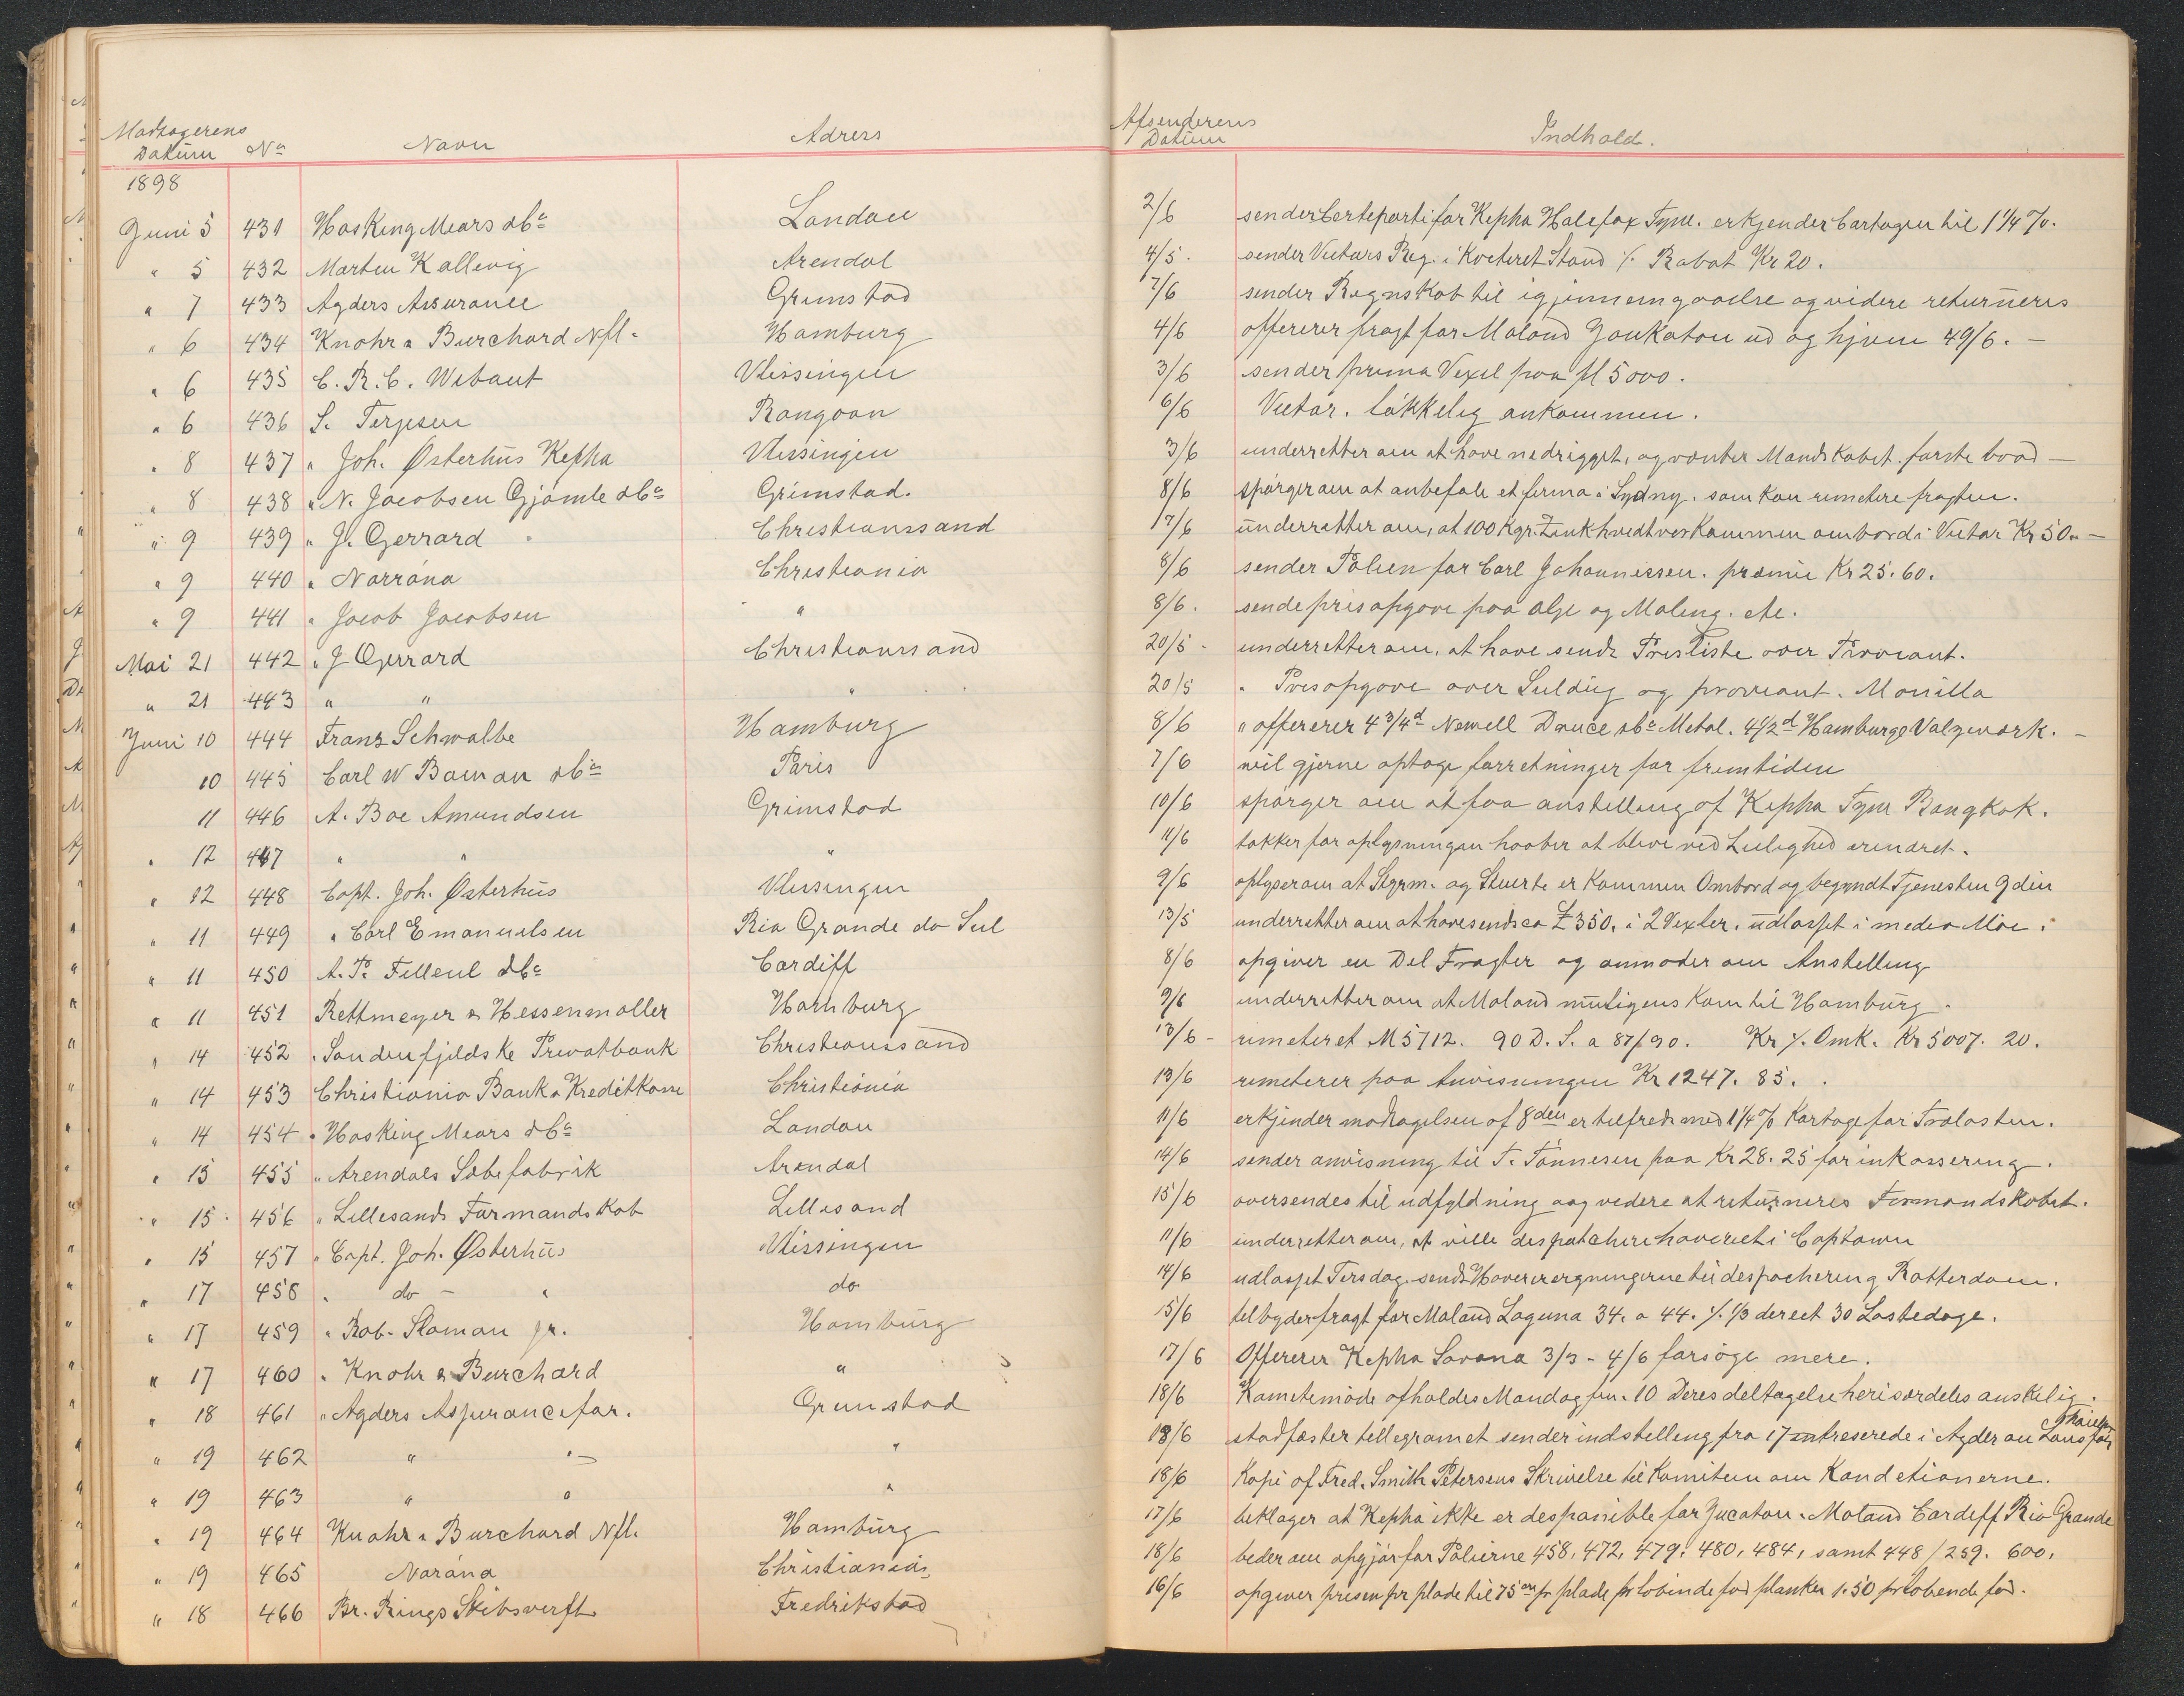 Modtagerens Datum No Navn Adress Afsenderens Datum Indhold.
1898
Juni 5 431 Hosking Mears & Co London 2/6 sender Certeparti for Kepha Halefax Tyne. erkjender Cartagen til 1 1/4 %.
" 5 432 Morten Kallevig Arendal 4/5. sender Victors Reg. i Kviteret Stand ./. Rabat Kr 20.
" 7 433 Agders Assurance Grimstad 7/6 sender Regnskab til igjennemgaaelse og videre returneres
" 6 434 Knohr & Burchard Nfl. Hamburg 4/6 offererer fragt for Moland Youkaton ud og hjem 49/6. —
" 6 435 C. R. C. Wibaut Vlissingen 3/6 sender prima Vexel paa fl 5000.
" 6 436 S. Terjesen Rangoon 6/6 Victor. lökkelig ankommen.
" 8 437 " Joh. Østerhus Kepha Vlissingen 3/6 underretter om at have nedrigget, og venter Mandskabet förste baad —
" 8 438 " N. Jacobsen Gjömle & Co Grimstad. 8/6 spörger om at anbefale et firma i Sydny. som kan remetere fragten.
" 9 439 " J. Gerrard Christianssand 17/6 underretter om, at 100 Kgr. Zinkhvidt var kommen ombord i Victor Kr 50. —
" 9 440 " Norröna Christiania 8/6 sender Polisen for Carl Johannessen. premie Kr 25. 60.
" 9 441 " Jacob Jacobsen " 8/6. sende prisopgave paa olje og Maling. etc.
Mai 21 442 " J Gerrard Christianssand 20/5 - underretter om, at have sendt Prisliste over Proviant.
" 21 443 " " " 20/5 " Prisopgave over Sulding og proviant. Manilla
Juni 10 444 Franz Schwalbe Hamburg 8/6 " offererer 4 3/4 d Newell Druce & Co Metal. 4 1/2 d Hamburge Valzwærk. —
10 445 Carl W Boman & Co Paris 7/6 vil gjerne optage forretninger for fremtiden
11 446 A. Boe Amundsen Grimstad 10/6 spörger om at faa anstelling af Kepha Tyne Bangkok.
" 12 447 " " " 11/6 takker for oplysningen haaber at blive ved Leilighed erindret.
" 12 448 Capt. Joh. Østerhus Vlissingen 9/6 oplyser om at Styrm. og Stuert er kommen Ombord og begyndt Tjenesten 9 din
" 11 449 " Carl Emanuelsen Rio Grande do Sul 13/5 underretter om at have sendt ca £ 350. i 2 Vexler. udlosset i
" 11 450 A. P. Filleul & Co Cardiff 8/6 opgiver en Del Fragter og anmoder om Anstelling
" 11 451 Rettmeyer & Hessenmöller Hamburg 9/6 underretter om at Moland muligens kom til Hamburg.
" 14 452 " Söndenfjeldske Privatbank Christianssand 13/6 - remeteret M 5712. 90 D. S. a 87/90. Kr ./. Omk. Kr 5007. 20.
" 14 453 Christiania Bank & Kreditkasse Christiania 13/6 remeterer paa Anvisningen Kr 1247. 85.
" 14 454 " Hosking Mears & Co London 11/6 erkjender modtagelsen af 8 den er tilfreds med 1 1/4 % Kartage for Trælasten.
" 15 455 " Arendals Sæbefabrik Arendal 14/6 sender anvisning til T. Tönnesen paa Kr 28. 25 for inkassering.
" 15. 456 " Lillesands Formandskab Lillesand 15/6 oversendes til udfyldning aag videre at returneres Formandskabet.
" 15 457 " Capt. Joh. Østerhus Vlissingen 11/6 underretter om, at ville despatchere havariet i Captown
" 17 458 " do — " do 14/6 udlosset Tirsdag. sendt til despachering Rotterdam.
" 17 459 " Rob. Sloman jr. Hamburg 15/6 telbyder fragt for Moland Laguna 34. a 44. ./. 1/3 dereet 30 Lastedage.
" 17 460 " Knohr & Burchard " 17/6 Offererer Kepha Savana 3/3 - 4/6 forsöge mere.
" 18 461 " Agders Assurancefor. Grimstad 18/6 Kometemöde afholdes Mandag fm. 10 Deres deltagelse heri særdeles önskelig.
" 19 462 " " " 18/6 stadfæster tellegramet sender indstelling fra 17 intreserede i Agder
" 19 463 " " " 18/6 Kopi af Fred. Smith Petersens Skrivelse til Komiteen om Kondetionerne.
" 19 464 Knohr & Burchard Nfl. Hamburg 17/6 beklager at Kepha ikke er desponible for Jucaton. Moland Cardeff Rio Grande
" 19 465 Noröna Christiania 18/6 beder om opgjör for Poliserne 458, 472, 479, 480, 484, samt 448 / 259. 600.
" 18 466 Br. Rings Skibsverft Fredrikstad 16/6 opgiver prisen pr plade til 75 pr plade pr löbende fod planker 1.50 pr löbende fod.